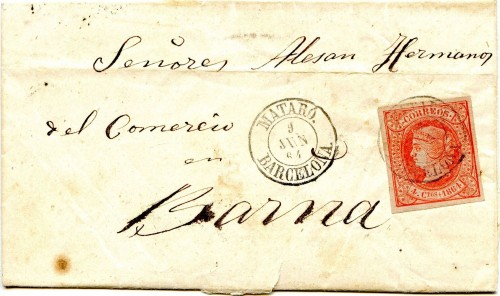 Señores Alesan Hermanos
del Comercio
en
Barna
MATARÓ.
9
JUN
64
BARCELONA.
CORREOS
4 CTOS. 1864